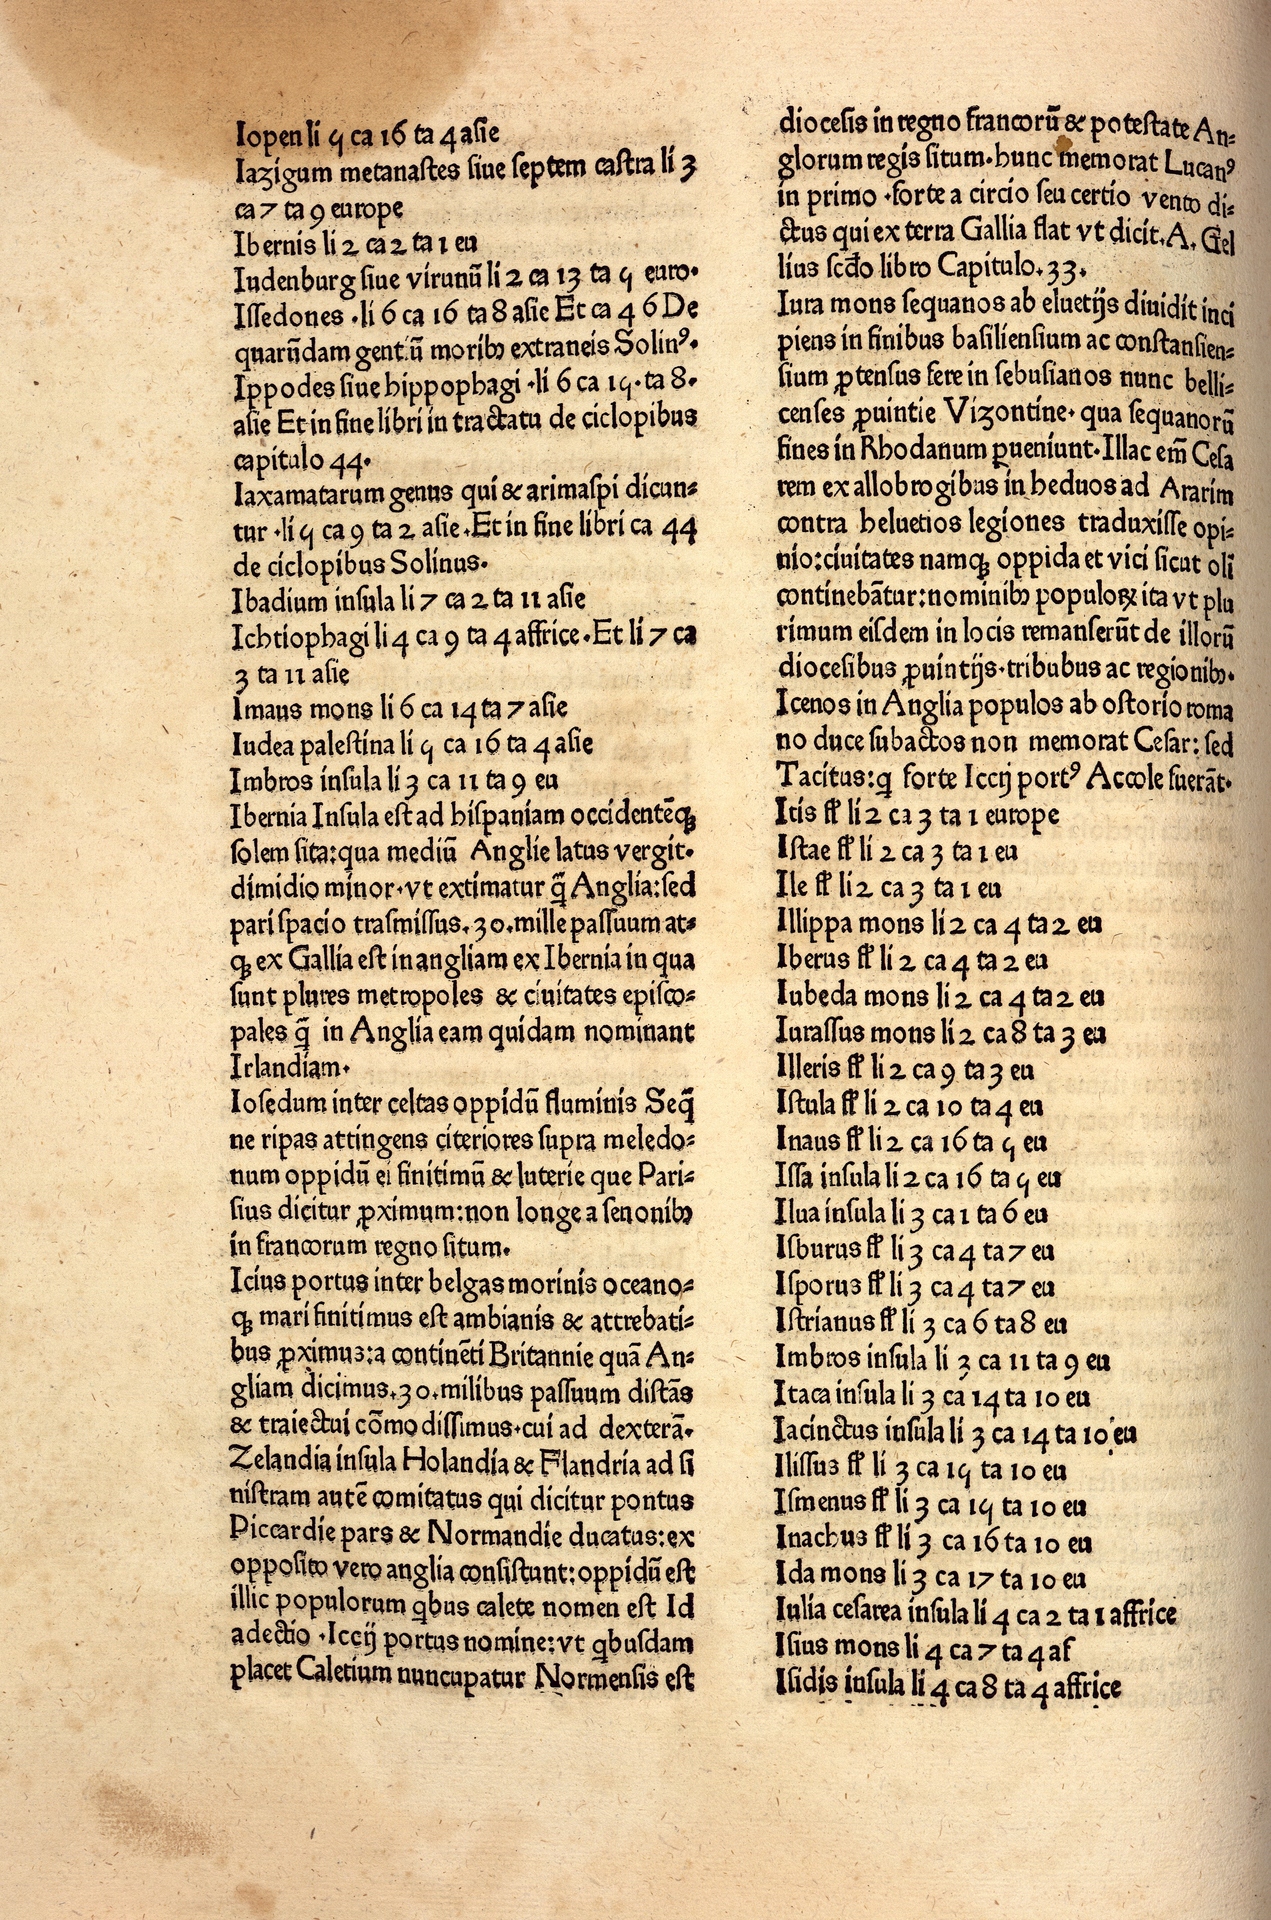 Iopen li 5 ca 16 ta 4 asie
Iazigum metanastes siue septem castra li 3
ca 7 ta 9 europe
Ibernis li 2 ca 2 ta 1 eu
Iudenburg siue virunū li 2 ca 13 ta 5 euro.
Issedones .li 6 ca 16 ta 8 asie Et ca 46 De
quarūdam gentiū moribꝫ extraneis Solinꝰ.
Ippodes siue hippophagi .li 6 ca 15. ta 8.
asie Et in fine libri in tractatu de ciclopibus
capitulo 44.
Iaxamatarum genus qui & arimaspi dicun⸗
tur .li 5 ca 9 ta 2 asie. Et in fine libri ca 44
de ciclopibus Solinus.
Ibadium insula li 7 ca 2 ta 11 asie
Ichtiophagi li 4 ca 9 ta 4 affrice. Et li 7 ca
3 ta 11 asie
Imaus mons li 6 ca 14 ta 7 asie
Iudea palestina li 5 ca 16 ta 4 asie
Imbros insula li 3 ca 11 ta 9 eu
Ibernia Insula est ad hispaniam occidentēqꝫ
solem sita: qua mediū Anglie latus vergit.
dimidio minor. vt extimatur q̄ Anglia: sed
pari spacio trasmissus. 30. mille passuum at⸗
qꝫ ex Gallia est in angliam ex Ibernia in qua
sunt plures metropoles & ciuitates episco⸗
pales q̄ in Anglia eam quidam nominant
Irlandiam.
Iosedum inter celtas oppidū fluminis Seq̄
ne ripas attingens citeriores supra meledo⸗
num oppidū ei finitimū & luterie que Pari⸗
sius dicitur ꝓximum: non longe a senonibꝫ
in francorum regno situm.
Icius portus inter belgas morinis oceano⸗
qꝫ mari finitimus est ambianis & attrebati⸗
bus ꝓximus: a continēti Britannie quā An⸗
gliam dicimus. 30. milibus passuum distās
& traiectui cōmodissimus. cui ad dexterā.
Zelandia insula Holandia & Flandria ad si
nistram autē comitatus qui dicitur pontus
Piccardie pars & Normandie ducatus: ex
opposito vero anglia consistunt: oppidū est
illic populorum qbus calete nomen est Id
adectio .Iccij portus nomine: vt qbusdam
placet Caletium nuncupatur Normensis est
diocesis in regno francorū & potestate An⸗
glorum regis situm. hunc memorat Lucanꝰ
in primo .forte a circio seu certio vento di⸗
ctus qui ex terra Gallia flat vt dicit. A. Gel
lius scd̄o libro Capitulo. 33.
Iura mons sequanos ab eluetijs diuidit inci
piens in finibus basiliensium ac constansien⸗
sium ꝓtensus fere in sebusianos nunc belli⸗
censes ꝓuintie Vizontine. qua sequanorū
fines in Rhodanum ꝑueniunt. Illac em̄ Cesa
rem ex allobrogibus in heduos ad Ararim
contra heluetios legiones traduxisse opi⸗
nio: ciuitates namqꝫ oppida et vici sicut oli
continebātur: nominibꝫ populoꝝ ita vt plu
rimum eisdem in locis remanserūt de illorū
diocesibus ꝓuintijs. tribubus ac regionibꝫ.
Icenos in Anglia populos ab ostorio roma
no duce subactos non memorat Cesar: sed
Tacitus: q̄ forte Iccij portꝰ Accole fuerāt.
Itis fl' li 2 ca 3 ta 1 europe
Istae fl' li 2 ca 3 ta 1 eu
Ile fl' li 2 ca 3 ta 1 eu
Illippa mons li 2 ca 4 ta 2 eu
Iberus fl' li 2 ca 4 ta 2 eu
Iubeda mons li 2 ca 4 ta 2 eu
Iurassus mons li 2 ca 8 ta 3 eu
Illeris fl' li 2 ca 9 ta 3 eu
Istula fl' li 2 ca 10 ta 4 eu
Inaus fl' li 2 ca 16 ta 5 eu
Issa insula li 2 ca 16 ta 5 eu
Ilua insula li 3 ca 1 ta 6 eu
Isburus fl' li 3 ca 4 ta 7 eu
Isporus fl' li 3 ca 4 ta 7 eu
Istrianus fl' li 3 ca 6 ta 8 eu
Imbros insula li 3 ca 11 ta 9 eu
Itaca insula li 3 ca 14 ta 10 eu
Iacinctus insula li 3 ca 14 ta 10 eu
Ilissus fl' li 3 ca 15 ta 10 eu
Ismenus fl' li 3 ca 15 ta 10 eu
Inachus fl' li 3 ca 16 ta 10 eu
Ida mons li 3 ca 17 ta 10 eu
Iulia cesarea insula li 4 ca 2 ta 1 affrice
Isius mons li 4 ca 7 ta 4 af
Isidis insula li 4 ca 8 ta 4 affrice